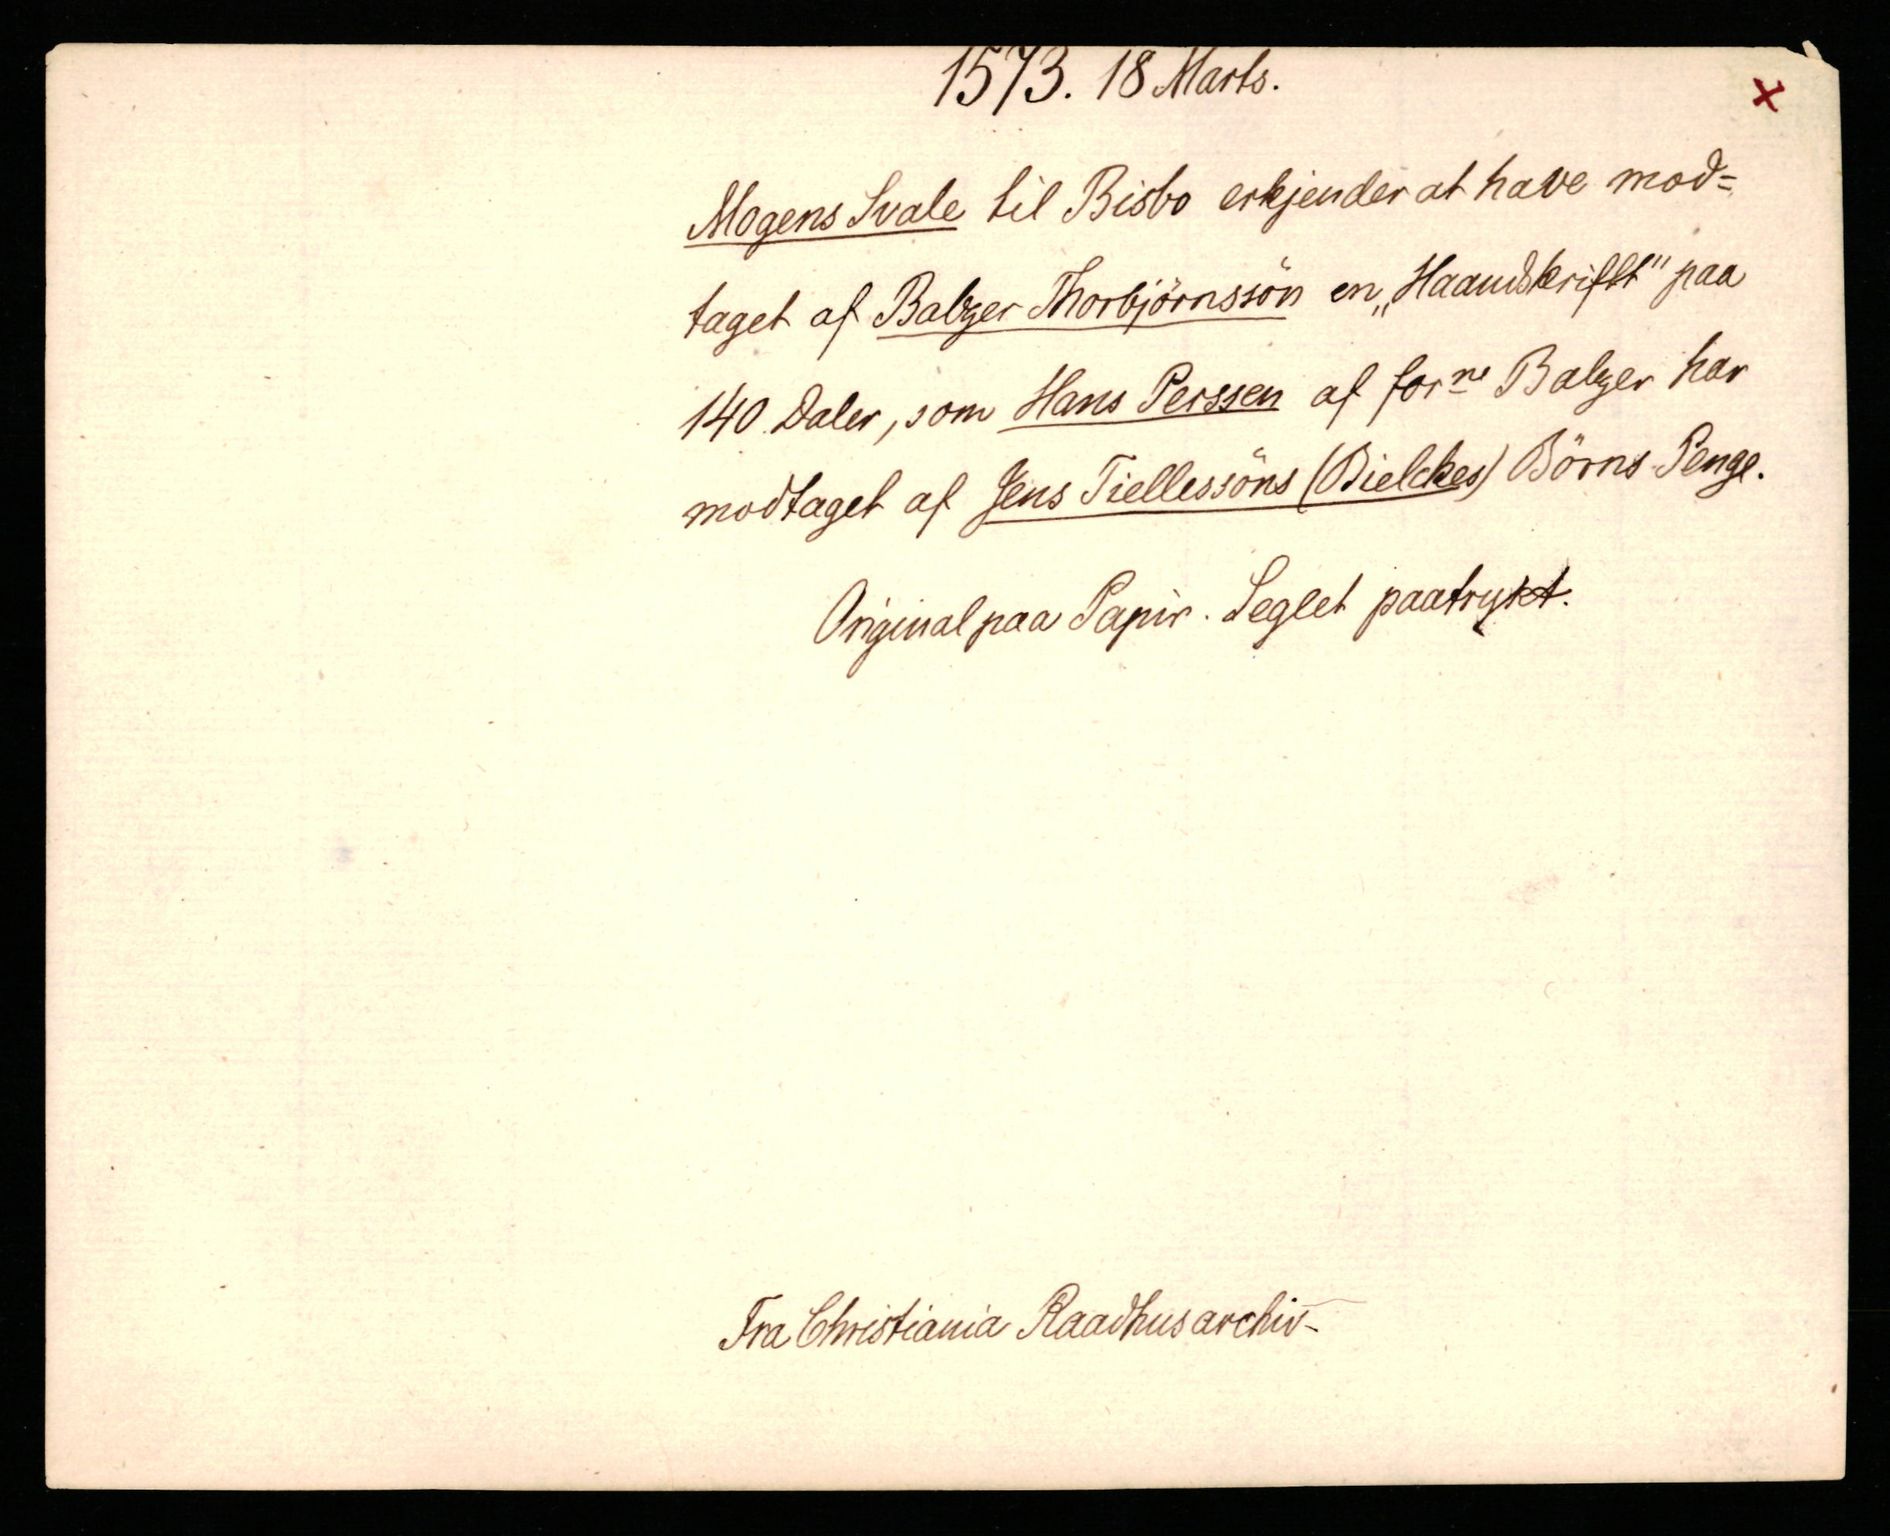 1573. 18 Marts.
x
Mogens Svale til Bisbo erkjender at have mod=
taget af Balzer Thorbjörnssön en „Haandskrifft" paa
140 Daler, som Hans Perssen af forne Balzer har
modtaget af Jens Tiellessöns (Bielckes) Börns Penge.
Original paa Papir. Seglet paatrykt.
Fra Christiania Raadhusarchiv